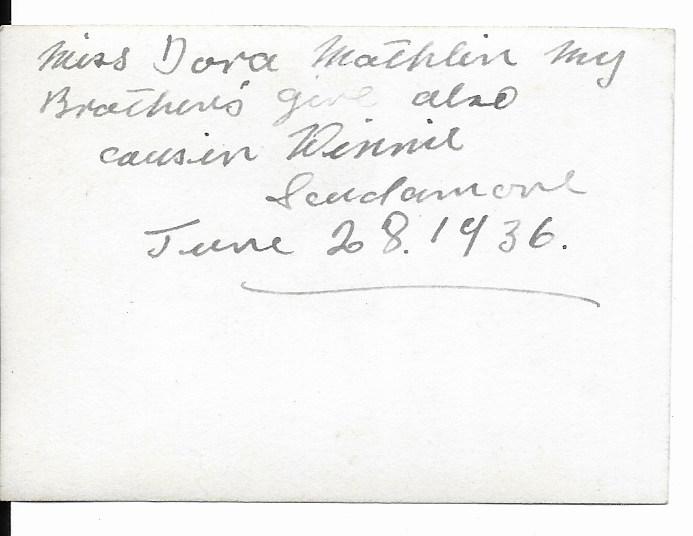 Miss Dora Mathlin My
Brother's girl also
cousin Winnie
Scudamore
June 28. 1936.